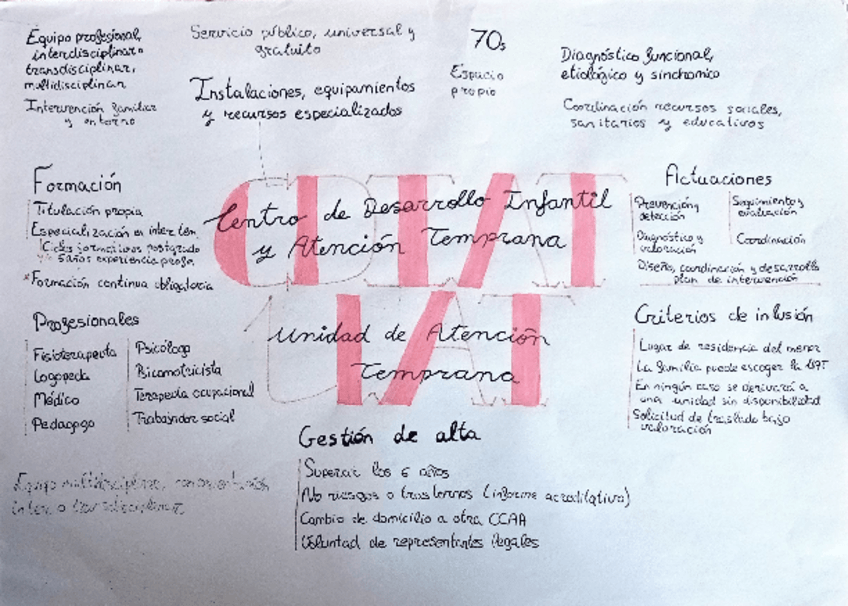 Equipo profesional,
interdisciplinar
transdisciplinar,
multidisciplinar
Intervención familiar
y entorno
Servicio público, universal y
gratuito
Instalaciones, equipamientos
y recursos especializados
70s
Espacio
propio
Diagnóstico funcional,
etiológico y sindromico
Coordinación recursos sociales,
sanitarios y educativos
CDIAT
Centro de Desarrollo Infantil
y Atención Temprana
UAT
Unidad de Atención
Temprana
Formación
Titulación propia
Especialización en
Ciclos formativos postgrado
5 años experiencia profe.
*Formación continua obligatoria
Profesionales
Fisioterapeuta
Logopeda
Médico
Pedagogo
Psicólogo
Psicomotricista
Terapeuta ocupacional
Trabajador social
Equipo multidisciplinar,
inter o transdisciplinar
Actuaciones
Prevención y
detección
Diagnóstico y
valoración
Seguimiento y
evaluación
Coordinación
Diseño, coordinación y desarrollo
plan de intervención
Criterios de inclusión
Lugar de residencia del menor
La familia puede escoger la UAT
En ningún caso se derivará a
una unidad sin disponibilidad
Solicitud de traslado bajo
valoración
Gestión de alta
Superar los 6 años
No riesgos o trastornos (informe acreditativo)
Cambio de domicilio a otra CCAA
Voluntad de representantes legales